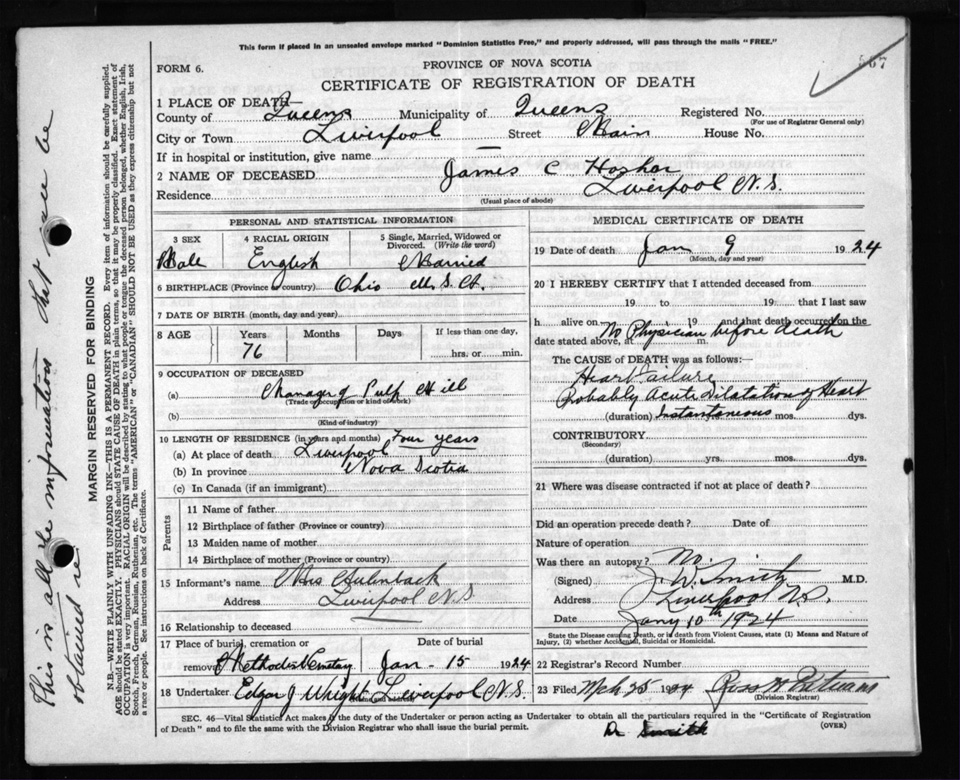 This form if placed in an unsealed envelope marked "Dominion Statistics Free," and properly addressed, will pass through the mails "FREE."
567
FORM 6.
PROVINCE OF NOVA SCOTIA
CERTIFICATE OF REGISTRATION OF DEATH
1 PLACE OF DEATH—
County of Queens Municipality of Queens Registered No.
(For use of Registrar General only)
City or Town Liverpool Street Main House No.
If in hospital or institution, give name —
2 NAME OF DECEASED James C Hosher
Residence Liverpool N.S.
(Usual place of abode)
PERSONAL AND STATISTICAL INFORMATION
3 SEX 4 RACIAL ORIGIN 5 Single, Married, Widowed or Divorced. (Write the word)
Male English Married
6 BIRTHPLACE (Province or country) Ohio
7 DATE OF BIRTH (month, day and year)
8 AGE Years Months Days If less than one day,
76 hrs. or min.
9 OCCUPATION OF DECEASED
(a) Manager of Pulp Mill
(Trade occupation or kind of work)
(b)
(Kind of industry)
10 LENGTH OF RESIDENCE (in years and months) Four years
(a) At place of death Liverpool
(b) In province Nova Scotia
(c) In Canada (if an immigrant)
Parents
11 Name of father
12 Birthplace of father (Province or country)
13 Maiden name of mother
14 Birthplace of mother (Province or country)
15 Informant's name Mrs
Address Liverpool N.S
16 Relationship to deceased
17 Place of burial, cremation or removal Date of burial
Methodist Cemetery Jan - 15 1924
18 Undertaker Edgar J Wright Liverpool N.S.
(Name and address)
MEDICAL CERTIFICATE OF DEATH
19 Date of death Jan 9 1924
(Month, day and year)
20 I HEREBY CERTIFY that I attended deceased from
19 to 19 that I last saw
h alive on 19 and that death occurred on the
date stated above, at m.
No Physician before death
The CAUSE of DEATH was as follows:
Heart Failure
Probably Acute Dilatation of Heart
(duration) Instantaneous mos. dys.
CONTRIBUTORY
(Secondary)
(duration) yrs. mos. dys.
21 Where was disease contracted if not at place of death?
Did an operation precede death? Date of
Nature of operation
Was there an autopsy? No.
(Signed) J. W. Smith M.D.
Address Liverpool N.S.
Date Jany 10th 1924
State the Disease causing Death, or in death from Violent Causes, state (1) Means and Nature of Injury, (2) whether Accidental, Suicidal or Homicidal.
22 Registrar's Record Number
23 Filed Mch 25 1924
(Division Registrar)
SEC. 46—Vital Statistics Act makes it the duty of the Undertaker or person acting as Undertaker to obtain all the particulars required in the "Certificate of Registration
of Death" and to file the same with the Division Registrar who shall issue the burial permit.
Dr Smith
(OVER)
MARGIN RESERVED FOR BINDING
N.B.—WRITE PLAINLY WITH UNFADING INK—THIS IS A PERMANENT RECORD. Every item of information should be carefully supplied.
AGE should be stated EXACTLY. PHYSICIANS should STATE CAUSE OF DEATH in plain terms, so that it may be properly classified. Exact statement of
OCCUPATION is very important. RACIAL ORIGIN will be described by stating to what people or tongue the deceased person belonged, whether English, Irish,
Scotch, French, German, Russian, Ruthenian, etc. The terms "AMERICAN" or "CANADIAN" SHOULD NOT BE USED as they express citizenship but not
a race or people. See instructions on back of Certificate.
This is all the information that can be
obtained re